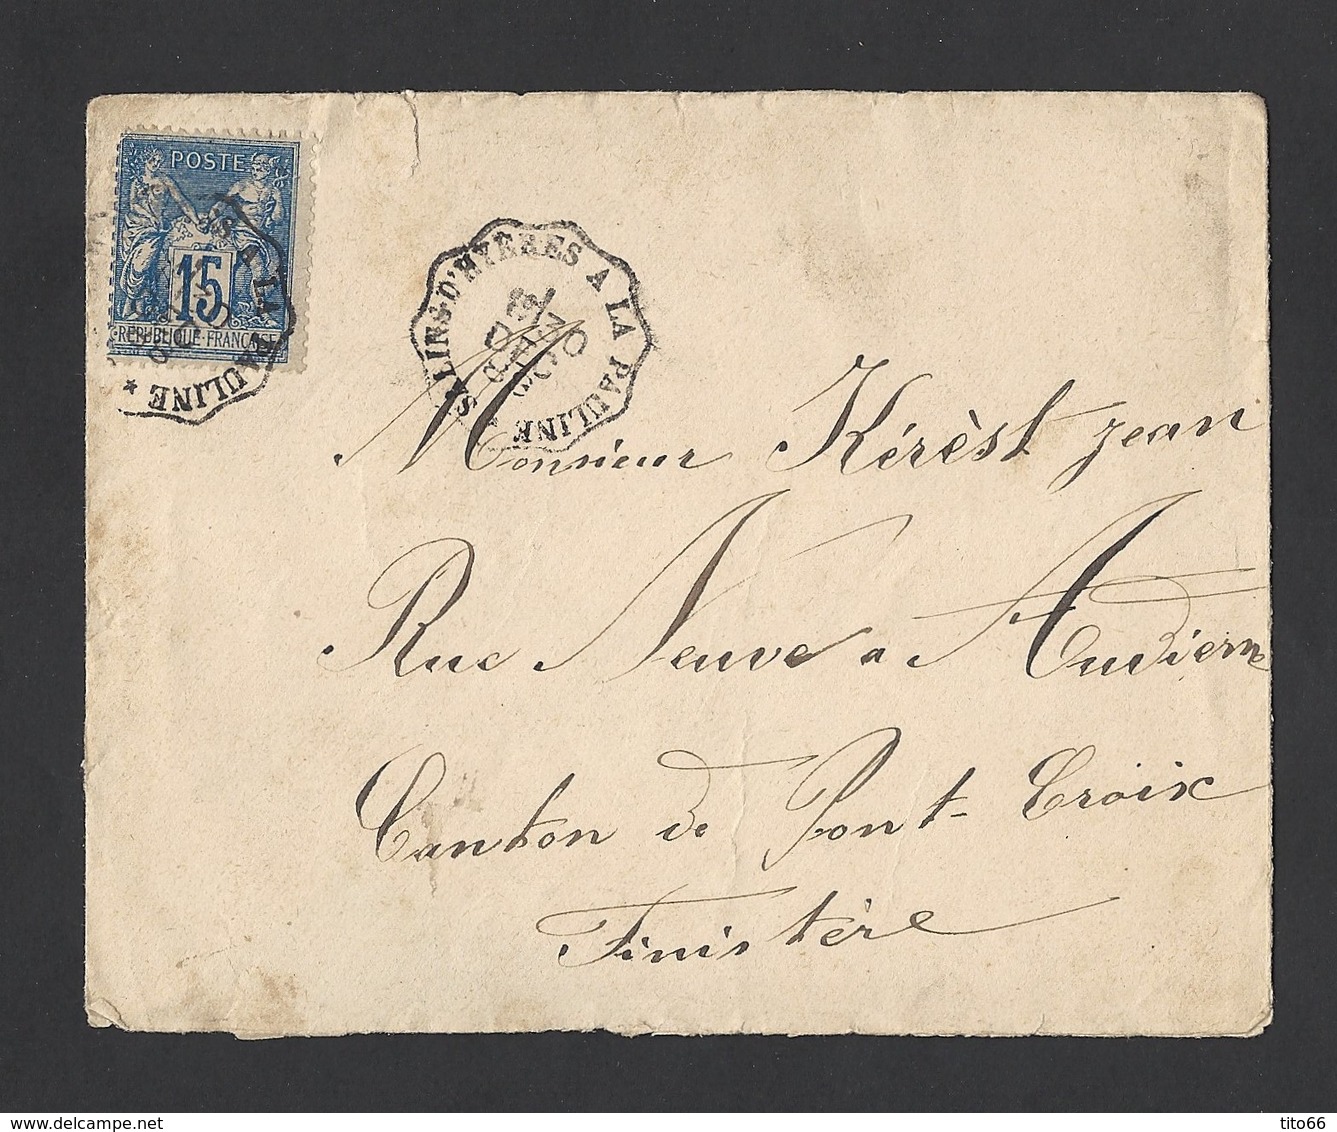 POSTE
15
REPUBLIQUE FRANCAISE
S A LA
AULINE *
SALINS-D'HYERES A LA PAULINE
Monsieur Kérèst Jean
Rue Neuve a Audierne
Canton de Pont-Croix
Finistère
delcampe.net
tito66